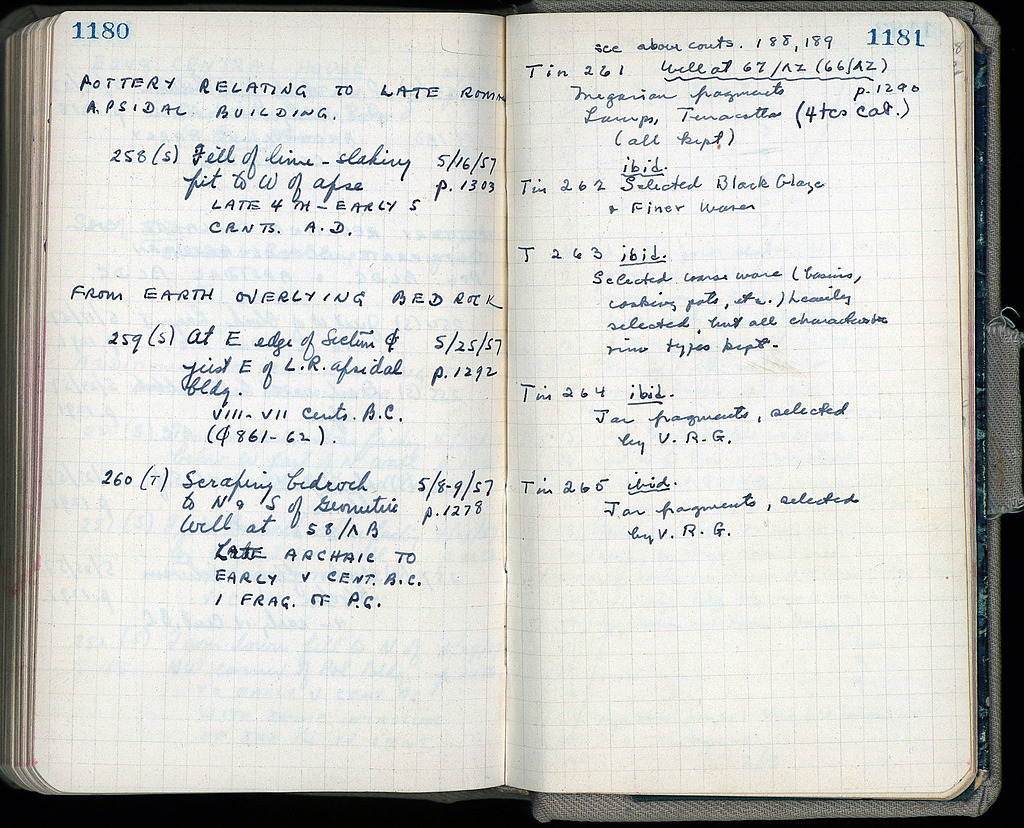 1180
POTTERY RELATING TO LATE ROMAN
APSIDAL BUILDING.
258 (S) Fill of lime-slaking 5/16/57
pit to W of apse p. 1303
LATE 4TH - EARLY 5
CENTS. A.D.
FROM EARTH OVERLYING BEDROCK
259 (S) At E edge of Section ϕ 5/25/57
just E of L.R. apsidal p. 1292
bldg.
VIII - VII cents. B.C.
(ϕ 861-62).
260 (T) Scraping bedrock 5/8-9/57
to N & S of Geometric p. 1278
Well at 58/ΛB
LATE ARCHAIC TO
EARLY V CENT. B.C.
1 FRAG. OF P.G.
1181
see above conts. 188, 189
Tin 261 Well at 67/ΛZ (66/ΛZ)
Megarian fragments p. 1290
Lamps, Terracottas (4 tcs cat.)
(all kept)
ibid.
Tin 262 Selected Black Glaze
& Finer wares
T 263 ibid.
Selected coarse ware (basins,
cooking pots, etc.) heavily
selected, but all character
types kept.
Tin 264 ibid.
Jar fragments, selected
by V. R. G.
Tin 265 ibid.
Jar fragments, selected
by V. R. G.